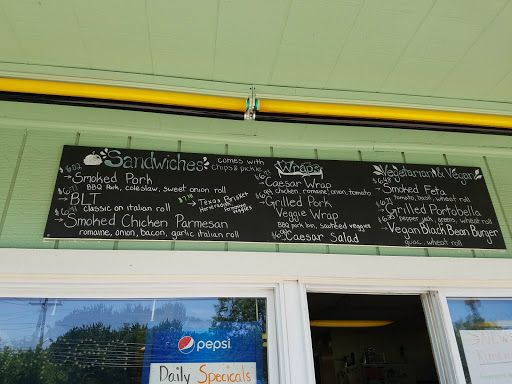 Sandwiches
comes with
chips & pickle
Smoked Pork
BBQ Pork, coleslaw, sweet onion roll
BLT
classic on italian roll
Texas Brisket
Smoked Chicken Parmesan
romaine, onion, bacon, garlic italian roll
Wraps
Caesar Wrap
chicken, romaine, onion, tomato
Grilled Pork
Veggie Wrap
BBQ pork loin, sauteed veggies
Caesar Salad
Vegetarian & Vegan
Smoked Feta
tomato, basil, wheat roll
Grilled Portobella
pepper jack, greens, wheat roll
Vegan Black Bean Burger
guac, wheat roll
pepsi
Daily Specicals